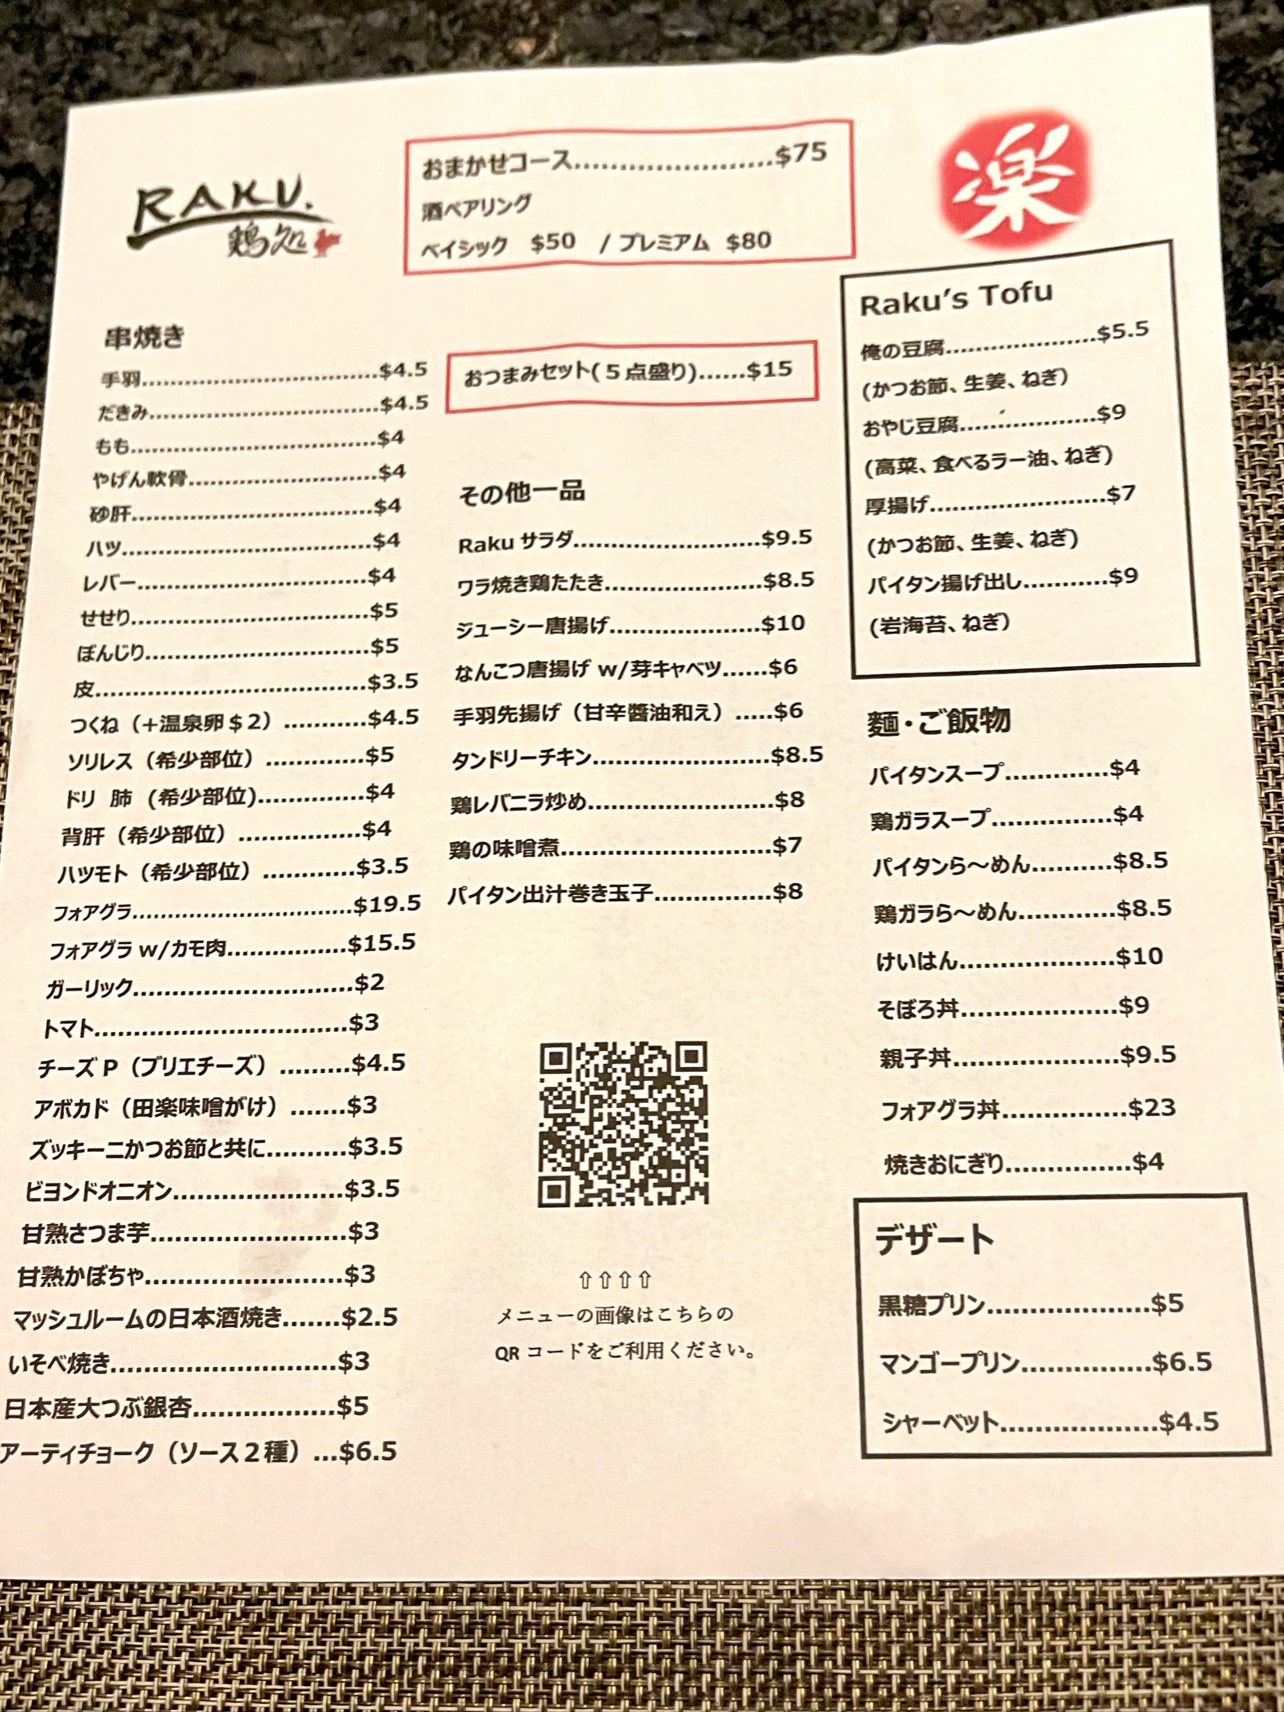 RAKU.
鶏処
おまかせコース......................$75
酒ペアリング
ベイシック $50 / プレミアム $80
楽
串焼き
手羽..............................$4.5
だきみ.............................$4.5
もも...............................$4
やげん軟骨........................$4
砂肝...............................$4
ハツ................................$4
レバー.............................$4
せせり..............................$5
ぼんじり............................$5
皮..................................$3.5
つくね（+温泉卵＄2）...........$4.5
ソリレス（希少部位）.............$5
ドリ 肺 (希少部位)..............$4
背肝（希少部位）................$4
ハツモト（希少部位）............$3.5
フォアグラ...........................$19.5
フォアグラ w/カモ肉...............$15.5
ガーリック............................$2
トマト................................$3
チーズ P（ブリエチーズ）.........$4.5
アボカド（田楽味噌がけ）.......$3
ズッキーニかつお節と共に..........$3.5
ビヨンドオニオン.....................$3.5
甘熟さつま芋.........................$3
甘熟かぼちゃ.........................$3
マッシュルームの日本酒焼き.......$2.5
いそべ焼き.............................$3
日本産大つぶ銀杏..................$5
アーティチョーク（ソース２種）...$6.5
おつまみセット(５点盛り)......$15
その他一品
Raku サラダ.......................$9.5
ワラ焼き鶏たたき...................$8.5
ジューシー唐揚げ...................$10
なんこつ唐揚げ w/芽キャベツ......$6
手羽先揚げ（甘辛醬油和え）.....$6
タンドリーチキン......................$8.5
鶏レバニラ炒め.......................$8
鶏の味噌煮..........................$7
パイタン出汁巻き玉子...............$8
⇧⇧⇧⇧
メニューの画像はこちらの
QR コードをご利用ください。
Raku's Tofu
俺の豆腐....................$5.5
(かつお節、生姜、ねぎ)
おやじ豆腐..................$9
(高菜、食べるラー油、ねぎ)
厚揚げ.......................$7
(かつお節、生姜、ねぎ)
パイタン揚げ出し...........$9
(岩海苔、ねぎ)
麵・ご飯物
パイタンスープ.............$4
鶏ガラスープ...............$4
パイタンら～めん..........$8.5
鶏ガラら～めん............$8.5
けいはん....................$10
そぼろ丼....................$9
親子丼.....................$9.5
フォアグラ丼................$23
焼きおにぎり................$4
デザート
黒糖プリン.....................$5
マンゴープリン................$6.5
シャーベット....................$4.5